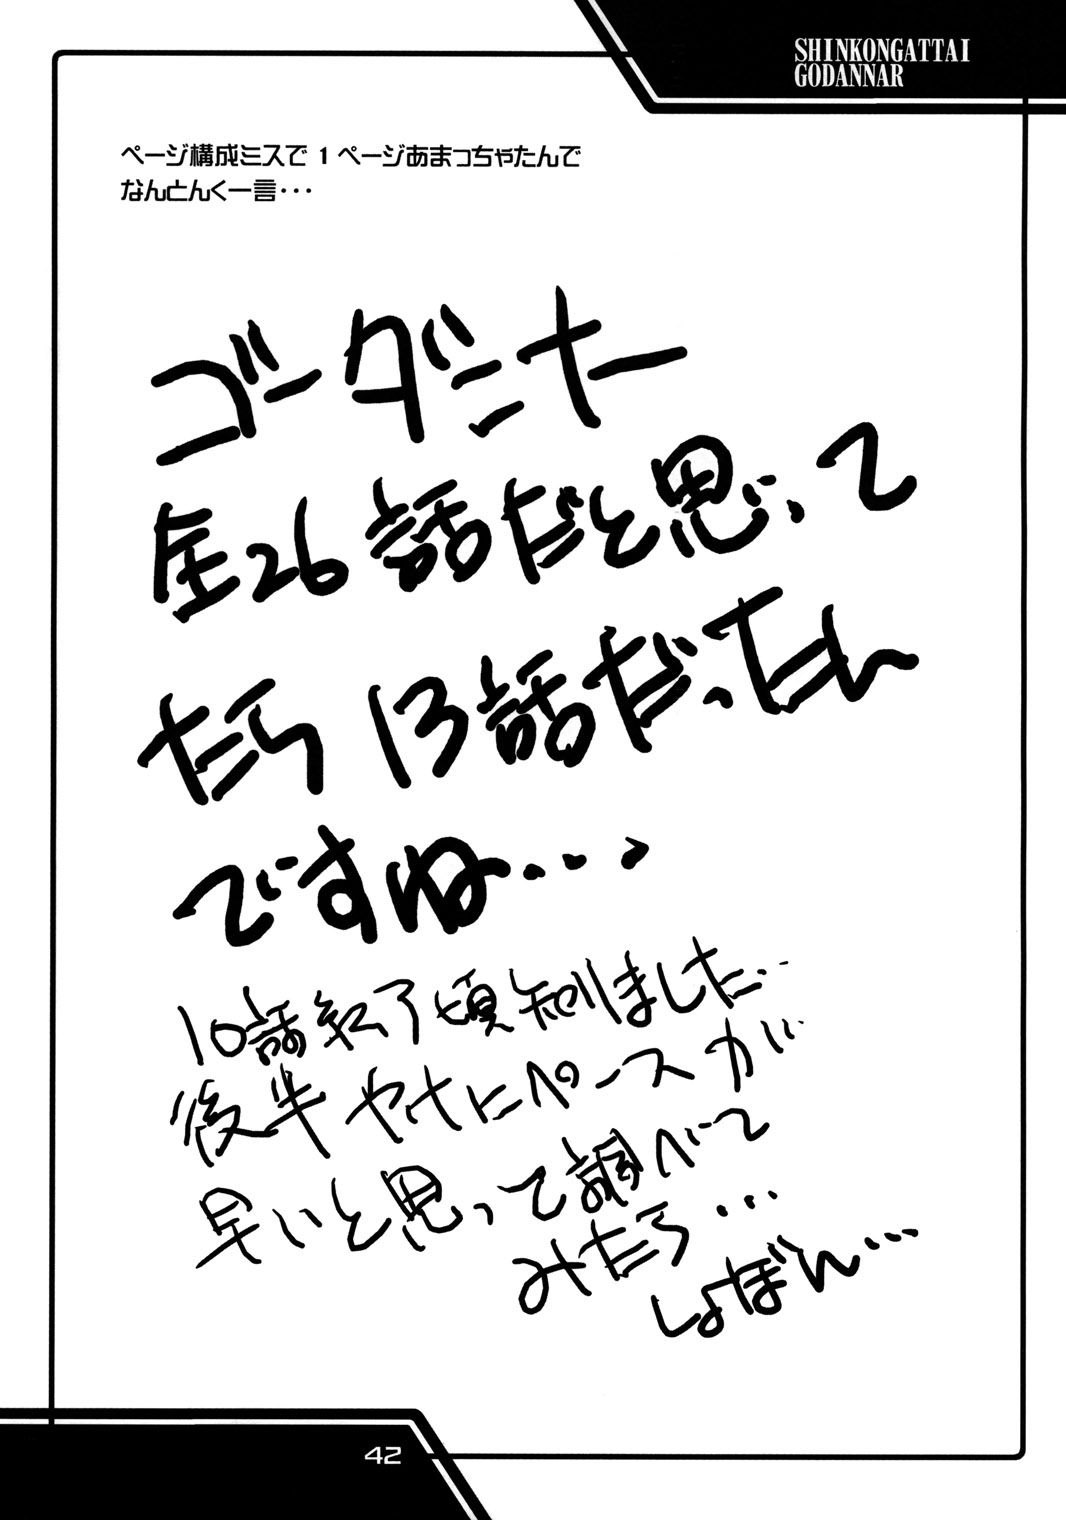 SHINKONGATTAI
GODANNAR
ページ構成ミスで 1 ページあまっちゃたんで
なんとんく一言・・・
ゴーダンナー
全26話だと思って
たら 13話だったん
ですね・・・
10話終了頃知りました…
後半やけにペースが
早いと思って調べて
みたら・・・
しょぼん・・・
42